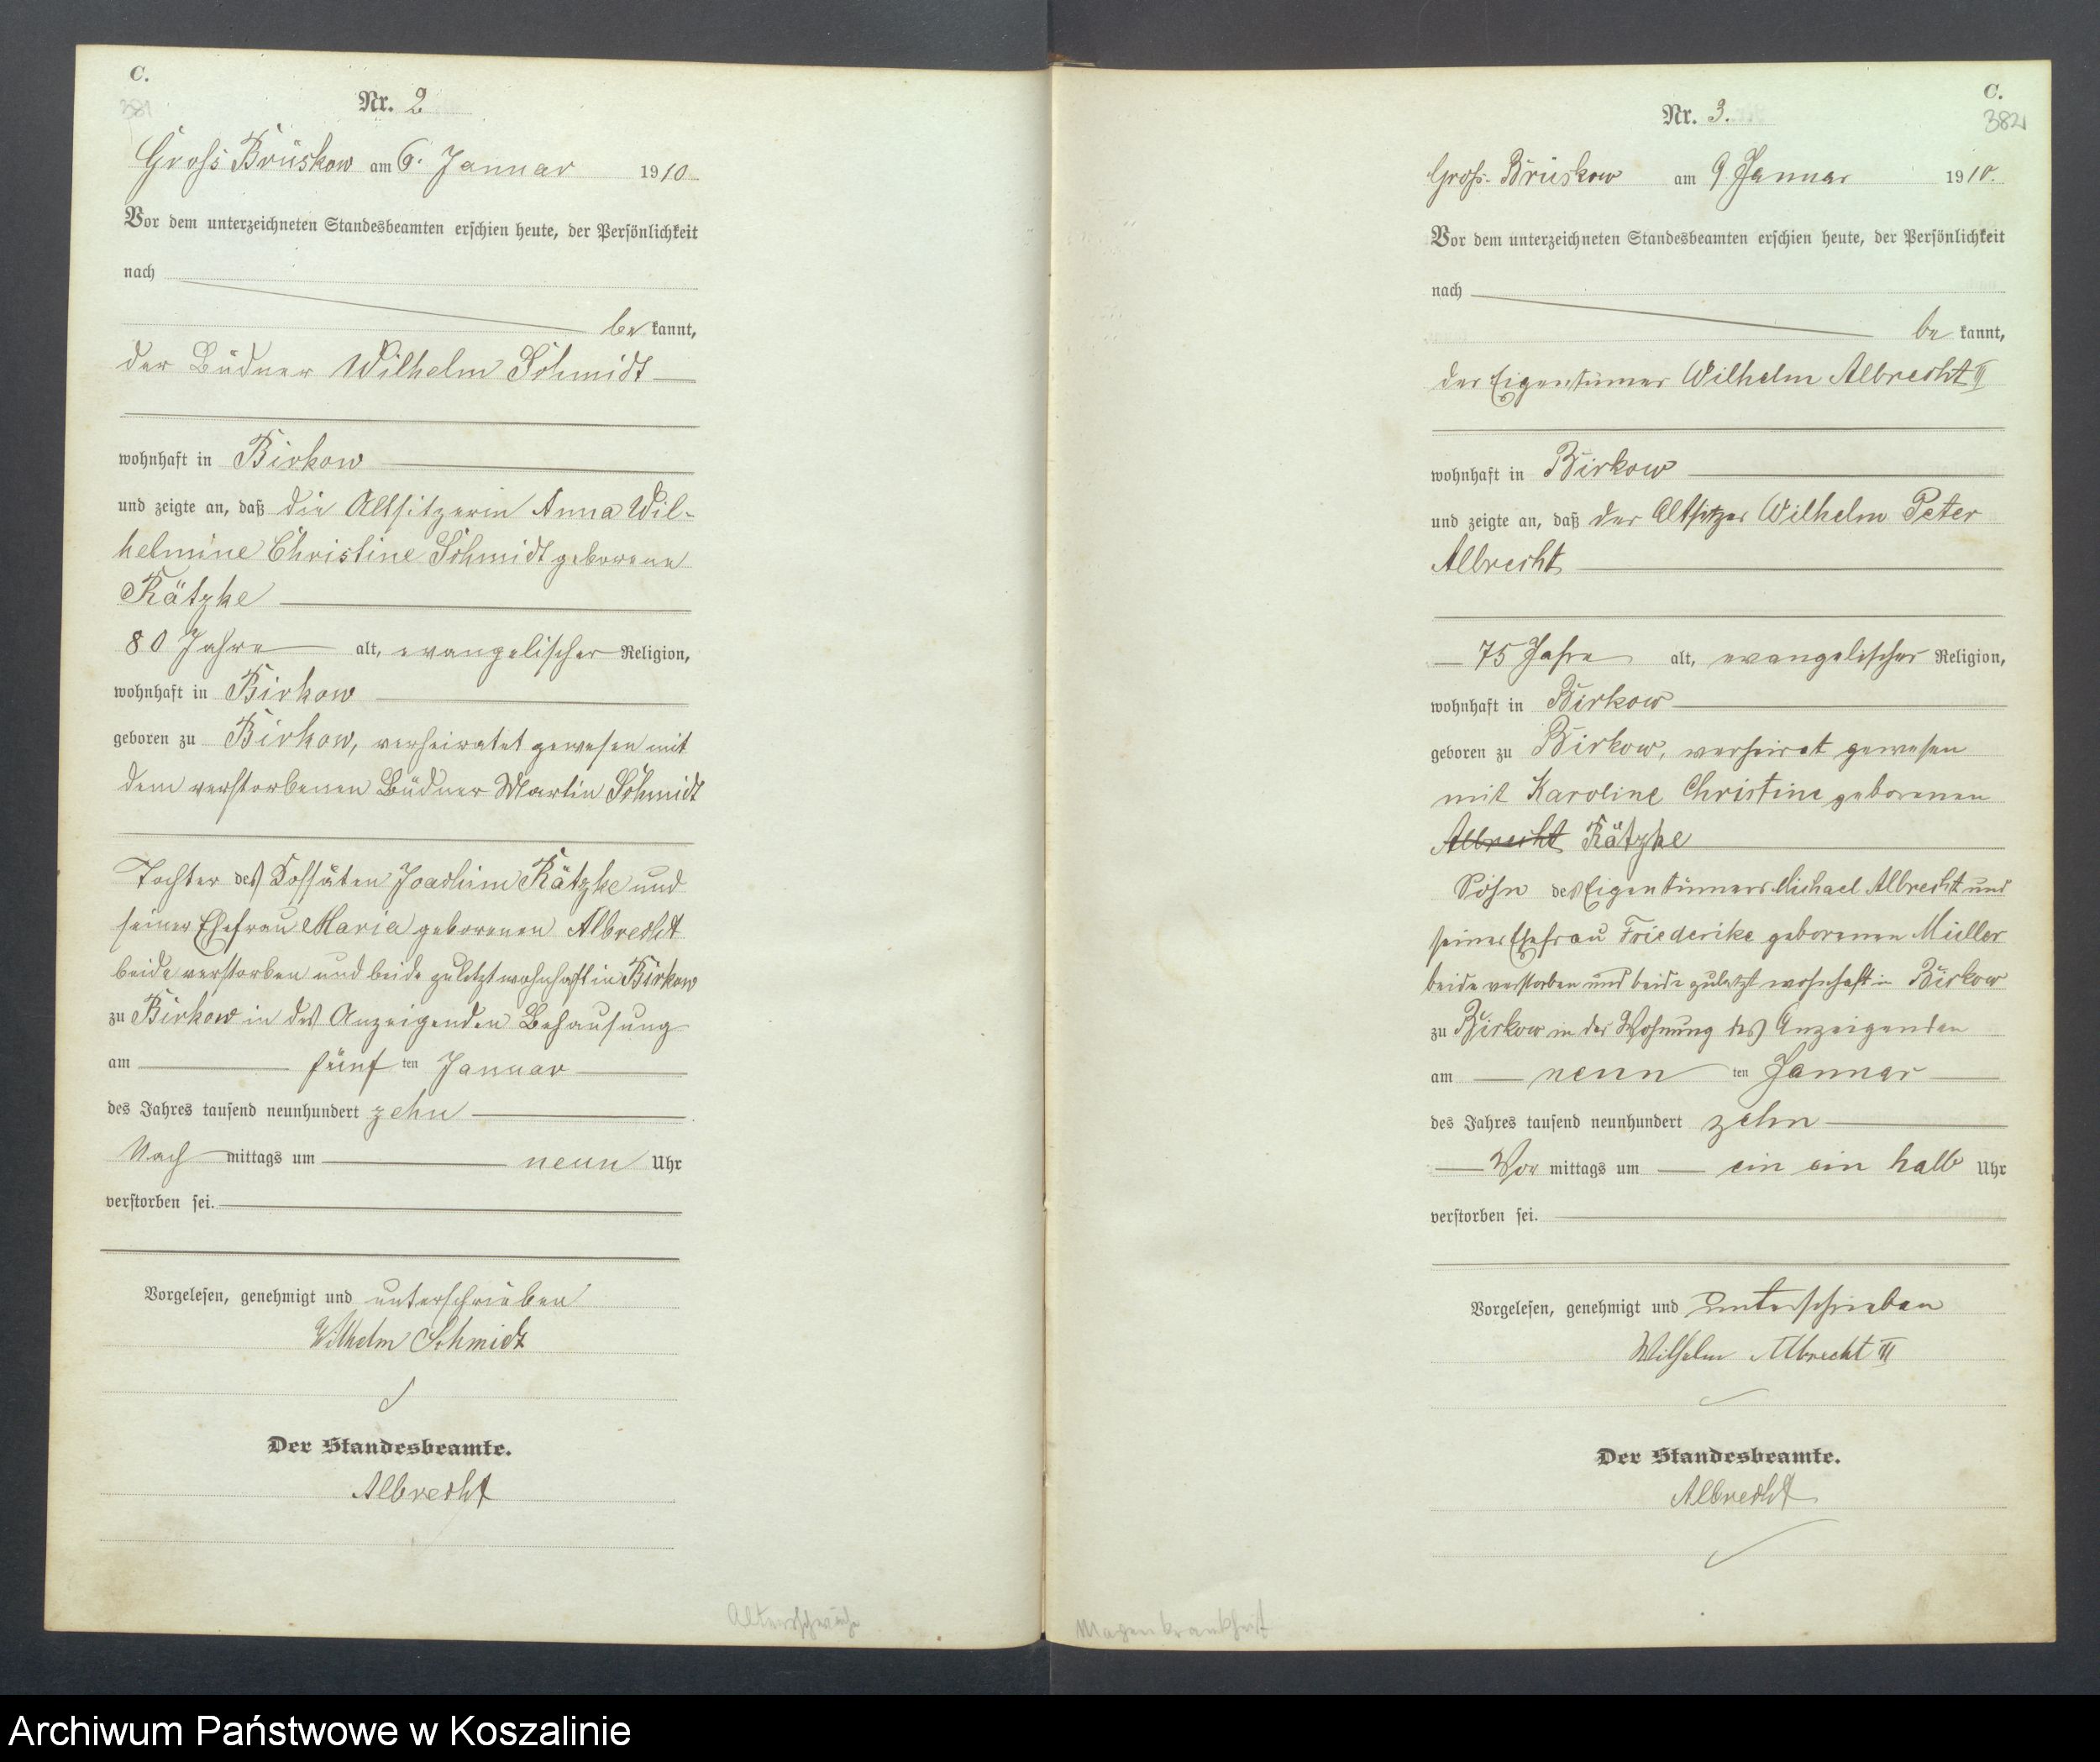 C.
381
Nr. 2
Gross Brüskow am 6. Januar 1910
Vor dem unterzeichneten Standesbeamten erschien heute, der Persönlichkeit
nach
be kannt,
der Büdner Wilhelm Schmidt
wohnhaft in Birkow
und zeigte an, daß die Altsitzerin Anna Wil-
helmine Christine Schmidt geborene
Kätzke
80 Jahre alt, evangelischer Religion,
wohnhaft in Birkow
geboren zu Birkow, verheiratet gewesen mit
dem verstorbenen Büdner Martin Schmidt
Tochter des Kossäten Joachim Kätzke und
seiner Ehefrau Maria geborenen Albrecht
beide verstorben und beide zuletzt wohnhaft in Birkow
zu Birkow in des Anzeigenden Behausung
am fünf ten Januar
des Jahres tausend neunhundert zehn
Nach mittags um neun Uhr
verstorben sei.
Vorgelesen, genehmigt und unterschrieben
Wilhelm Schmidt
Der Standesbeamte.
Albrecht
Altersschwäche
C.
382
Nr. 3.
Gross-Brüskow am 9. Januar 1910.
Vor dem unterzeichneten Standesbeamten erschien heute, der Persönlichkeit
nach
be kannt,
der Eigentümer Wilhelm Albrecht III
wohnhaft in Birkow
und zeigte an, daß der Altsitzer Wilhelm Peter
Albrecht
75 Jahre alt, evangelischer Religion,
wohnhaft in Birkow
geboren zu Birkow, verheirat gewesen
mit Karoline Christine geborenen
Albrecht Kätzke
Sohn des Eigentümers Michael Albrecht und
seiner Ehefrau Friederike geborenen Müller
beide verstorben und beide zuletzt wohnhaft in Birkow
zu Birkow in der Wohnung des Anzeigenden
am neun ten Januar
des Jahres tausend neunhundert zehn
Vor mittags um ein ein halb Uhr
verstorben sei.
Vorgelesen, genehmigt und unterschrieben
Wilhelm Albrecht III
Der Standesbeamte.
Albrecht
Magenkrankheit
Archiwum Państwowe w Koszalinie